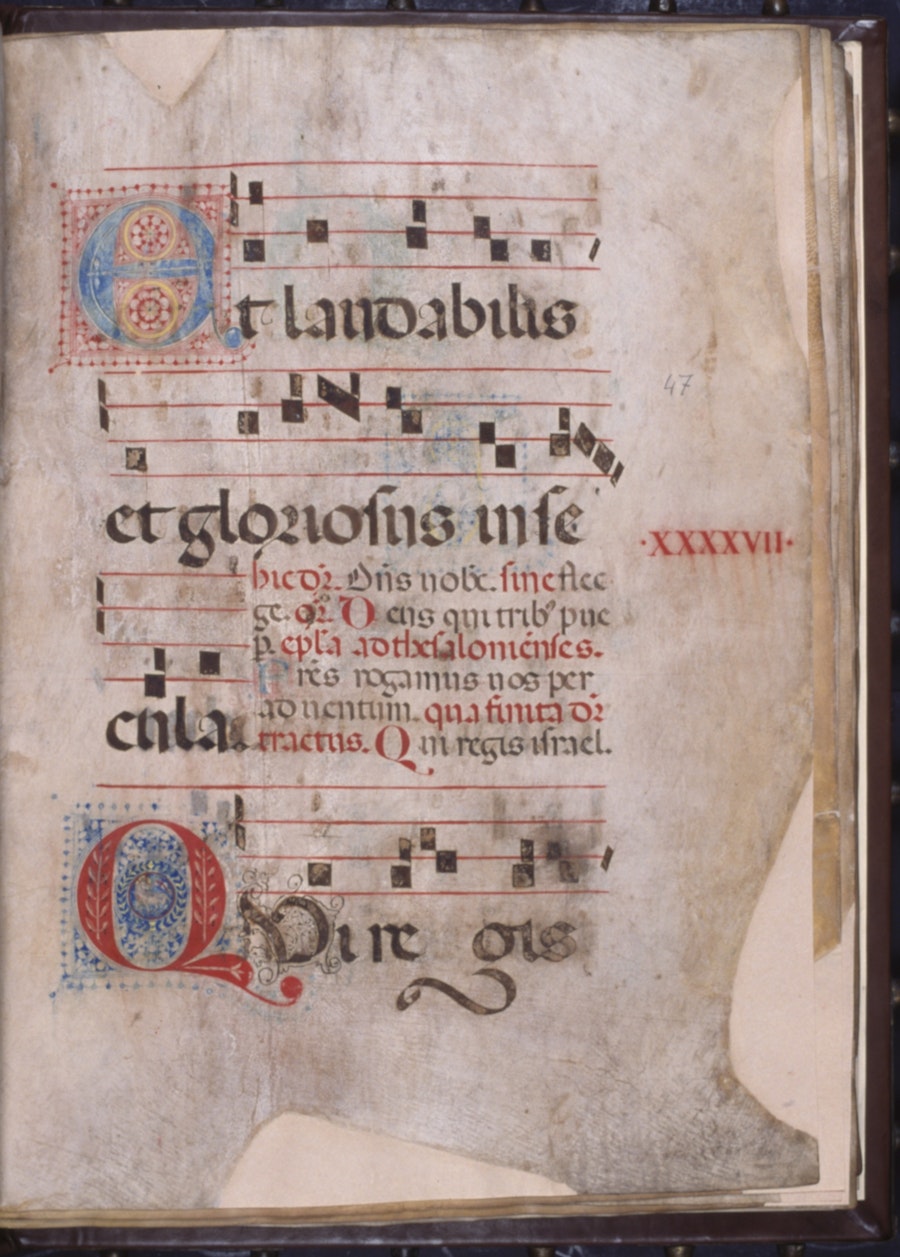 Et laudabilis
47
et gloriosus in se
·XXXXVII·
hic dr̄. Dn̄s uobc̄. sine flec
ge. or̄. D eus qui trib⁹ pue
p. epl̄a ad thesalonienses.
F rēs rogamus uos per
aduentum. qua finita dr̄
cula. tractus. Q ui regis israel.
QVi re gis